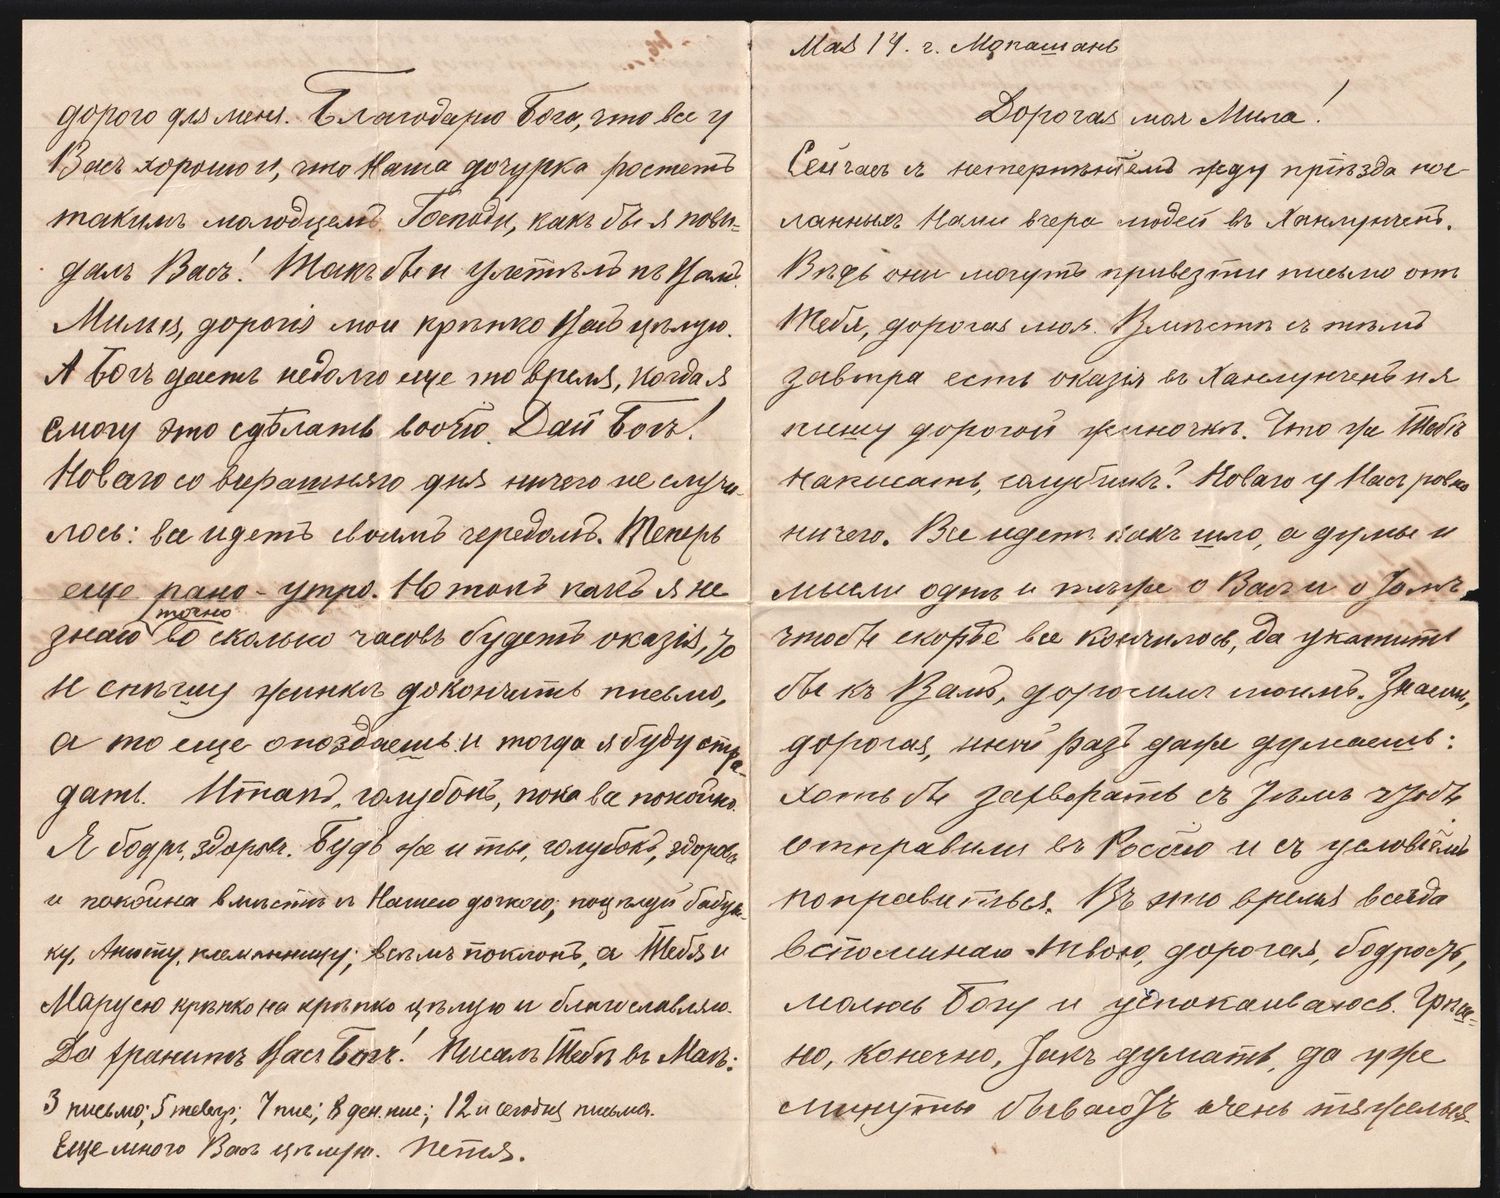 Мая 14. г. Мопашань
Дорогая моя Мила!
Сейчасъ съ нетерпѣніемъ жду пріѣзда пос-
ланныхъ Нами вчера людей въ Ханлунченъ.
Вѣдь они могутъ привезти письмо отъ
Тебя, дорогая моя. Вмѣстѣ съ тѣмъ
завтра есть оказія въ Ханлунченъ и я
пишу дорогой жиночкѣ. Что же Тебѣ
написать, голубчикъ? Новаго у Насъ ровно
ничего. Все идетъ какъ шло, а думы и
мысли однѣ и тѣже о Васъ и о томъ
чтобы скорѣе все кончилось, да укатить
бы къ Вамъ, дорогимъ моимъ. Знаешь,
дорогая, иной разъ даже думаешь:
хоть бы захворать съ тѣмъ чтобы
отправили въ Россію и съ условіемъ
поправиться. Въ это время всегда
вспоминаю Твою, дорогая, бодрость,
молюсь Богу и успокаиваюсь. Грѣш-
но, конечно, такъ думать, да уже
минуты бываютъ очень тяжелыя
дорого для меня. Благодарю Бога, что все у
Васъ хорошо и, что Наша дочурка ростетъ
такимъ молодцемъ. Господи, какъ бы я пови-
далъ Васъ! Такъ бы и улетѣлъ къ Вамъ.
Милыя, дорогія мои крѣпко Васъ цѣлую.
А Богъ дастъ недолго еще то время, когда я
смогу это сдѣлать воочію. Дай Богъ!
Новаго со вчерашняго дня ничего не случи-
лось: все идетъ своимъ чередомъ. Теперь
еще рано - утро. Но такъ какъ я не
знаю точно во сколько часовъ будетъ оказія, то
и спѣшу жинкѣ докончить письмо,
а то еще опоздаешь и тогда я буду стра-
дать. Итакъ, голубокъ, пока все покойно.
Я бодръ, здоровъ. Будь же и ты, голубокъ, здорова
и покойна вмѣстѣ съ Нашею дочкою; поцѣлуй бабуш-
ку, Анюту, племянницу; всѣмъ поклонъ, а Тебя и
Марусю крѣпко на крѣпко цѣлую и благославляю.
Да хранитъ Васъ Богъ! Писалъ Тебѣ въ Маѣ:
3 письмо; 5 телегр; 7 пис; 8 ден. пис; 12 и сегодня письма.
Еще много Васъ цѣлую. Петя.